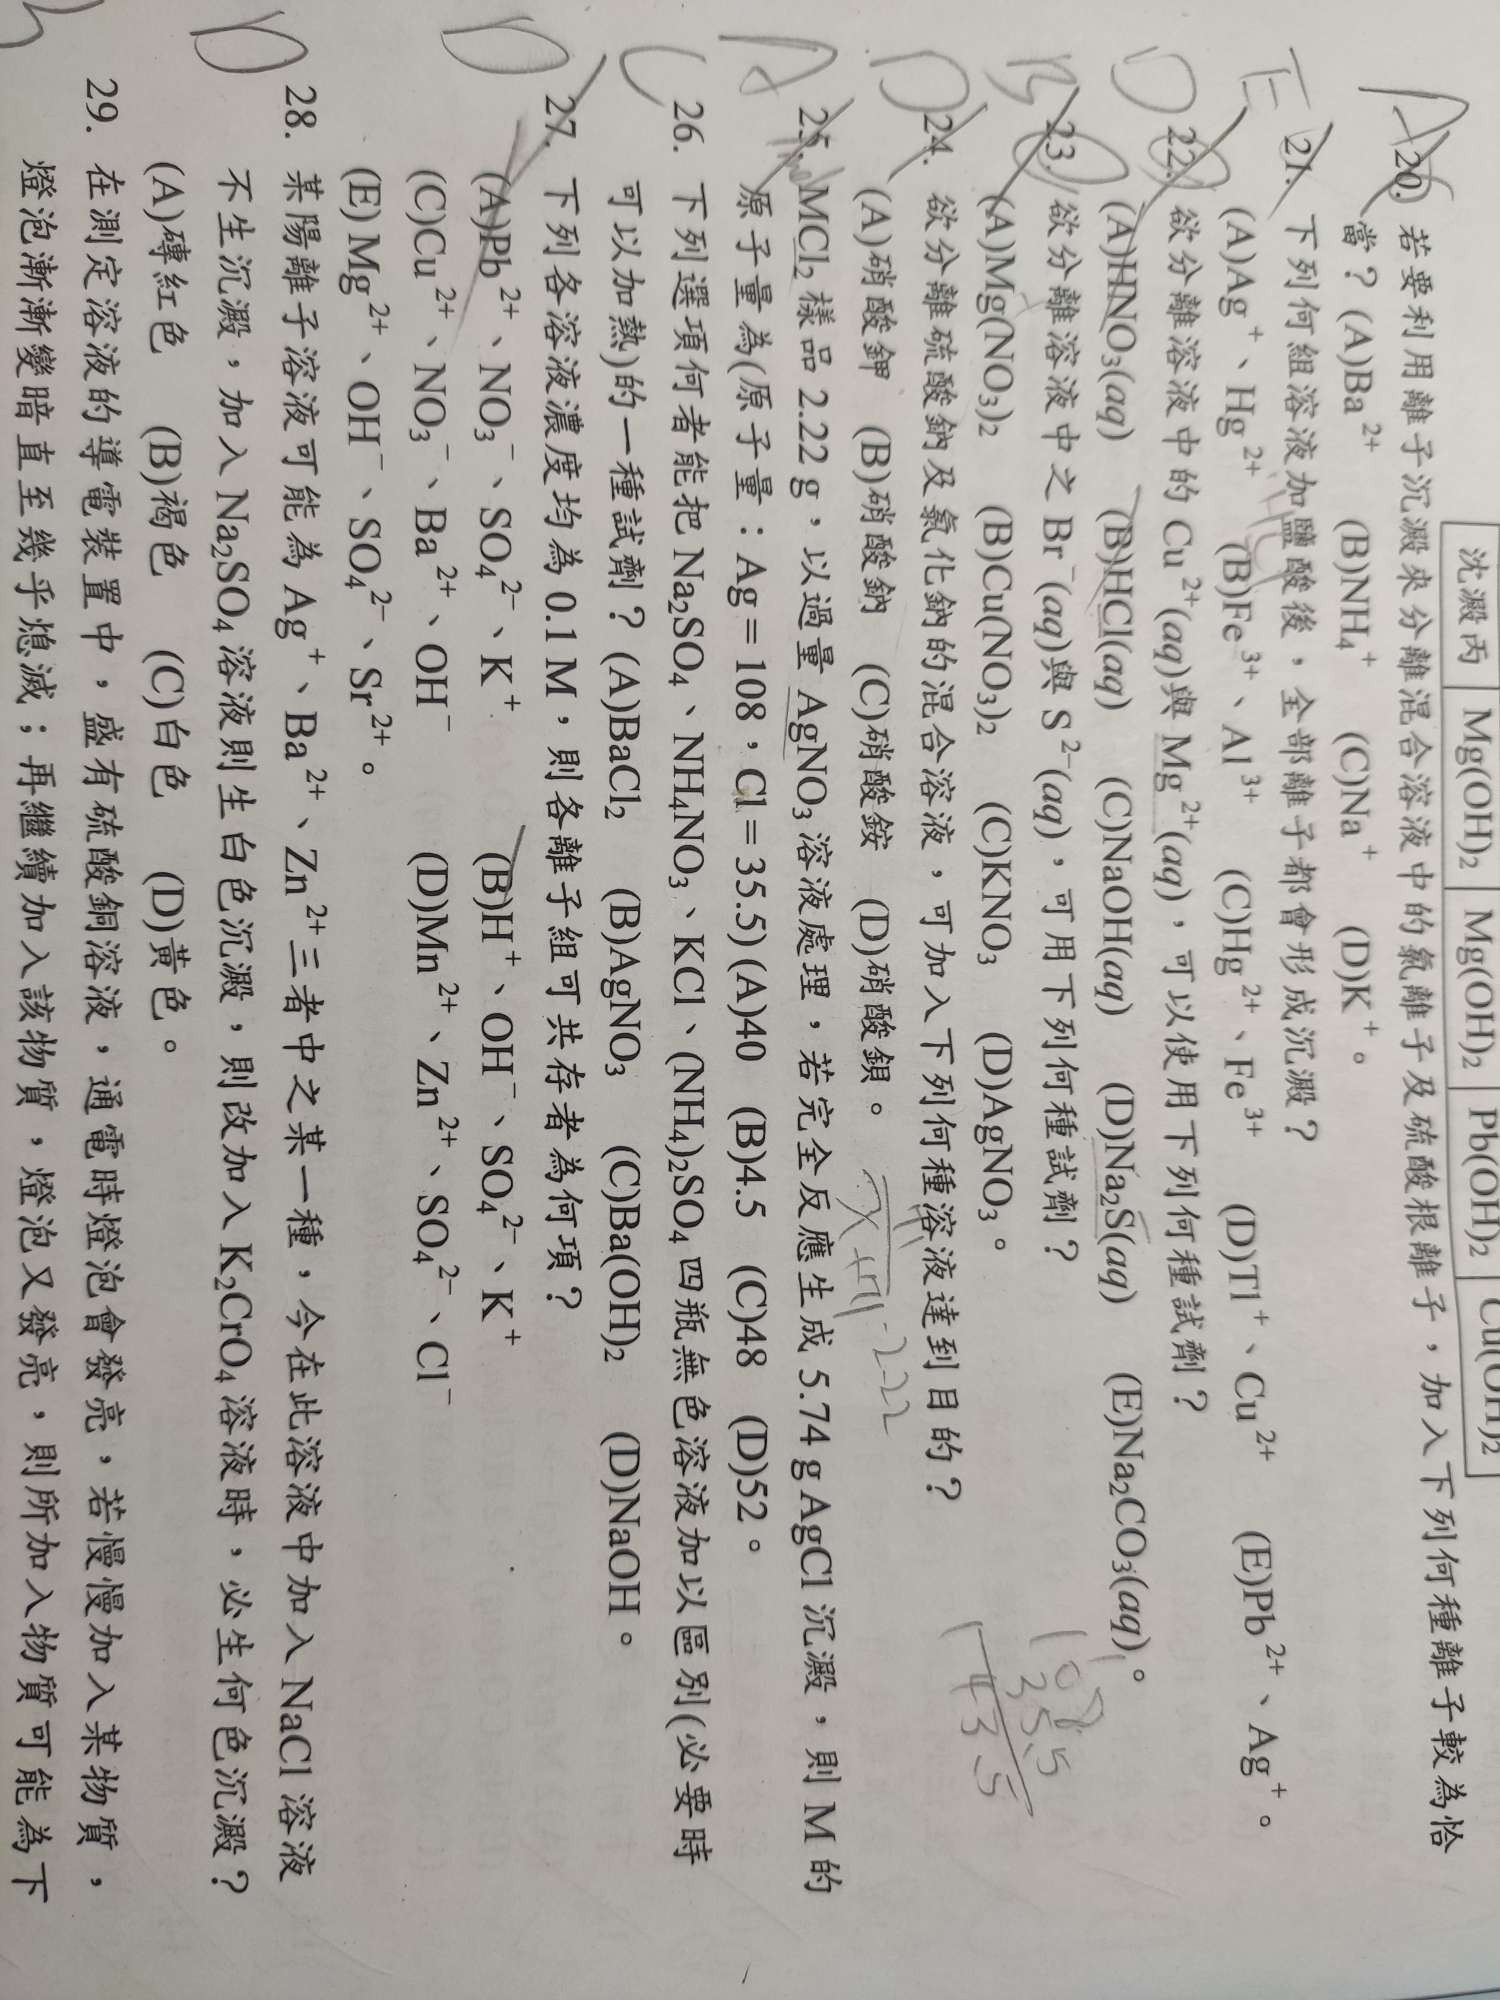 沈澱丙 Mg(OH)₂ Mg(OH)₂ Pb(OH)₂ Cu(OH)₂
A 20. 若要利用離子沉澱來分離混合溶液中的氯離子及硫酸根離子，加入下列何種離子較為恰
當？(A)Ba²⁺ (B)NH₄⁺ (C)Na⁺ (D)K⁺。
E 21. 下列何組溶液加鹽酸後，全部離子都會形成沉澱？
(A)Ag⁺、Hg²⁺ (B)Fe³⁺、Al³⁺ (C)Hg²⁺、Fe³⁺ (D)Tl⁺、Cu²⁺ (E)Pb²⁺、Ag⁺。
D 22. 欲分離溶液中的 Cu²⁺(aq)與 Mg²⁺(aq)，可以使用下列何種試劑？
(A)HNO₃(aq) (B)HCl(aq) (C)NaOH(aq) (D)Na₂S(aq) (E)Na₂CO₃(aq)。
B 23. 欲分離溶液中之 Br⁻(aq)與 S²⁻(aq)，可用下列何種試劑？
(A)Mg(NO₃)₂ (B)Cu(NO₃)₂ (C)KNO₃ (D)AgNO₃。
108
35.5
143.5
D 24. 欲分離硫酸鈉及氯化鈉的混合溶液，可加入下列何種溶液達到目的？
(A)硝酸鉀 (B)硝酸鈉 (C)硝酸銨 (D)硝酸鋇。
A 25. MCl₂樣品 2.22 g，以過量 AgNO₃溶液處理，若完全反應生成 5.74 g AgCl 沉澱，則 M 的
原子量為(原子量：Ag = 108，Cl = 35.5) (A)40 (B)4.5 (C)48 (D)52。
C 26. 下列選項何者能把 Na₂SO₄、NH₄NO₃、KCl、(NH₄)₂SO₄四瓶無色溶液加以區別(必要時
可以加熱)的一種試劑？(A)BaCl₂ (B)AgNO₃ (C)Ba(OH)₂ (D)NaOH。
D 27. 下列各溶液濃度均為 0.1 M，則各離子組可共存者為何項？
(A)Pb²⁺、NO₃⁻、SO₄²⁻、K⁺ (B)H⁺、OH⁻、SO₄²⁻、K⁺
(C)Cu²⁺、NO₃⁻、Ba²⁺、OH⁻ (D)Mn²⁺、Zn²⁺、SO₄²⁻、Cl⁻
(E)Mg²⁺、OH⁻、SO₄²⁻、Sr²⁺。
D 28. 某陽離子溶液可能為 Ag⁺、Ba²⁺、Zn²⁺三者中之某一種，今在此溶液中加入 NaCl 溶液
不生沉澱，加入 Na₂SO₄溶液則生白色沉澱，則改加入 K₂CrO₄溶液時，必生何色沉澱？
(A)磚紅色 (B)褐色 (C)白色 (D)黃色。
29. 在測定溶液的導電裝置中，盛有硫酸銅溶液，通電時燈泡會發亮，若慢慢加入某物質，
燈泡漸漸變暗直至幾乎熄滅；再繼續加入該物質，燈泡又發亮，則所加入物質可能為下